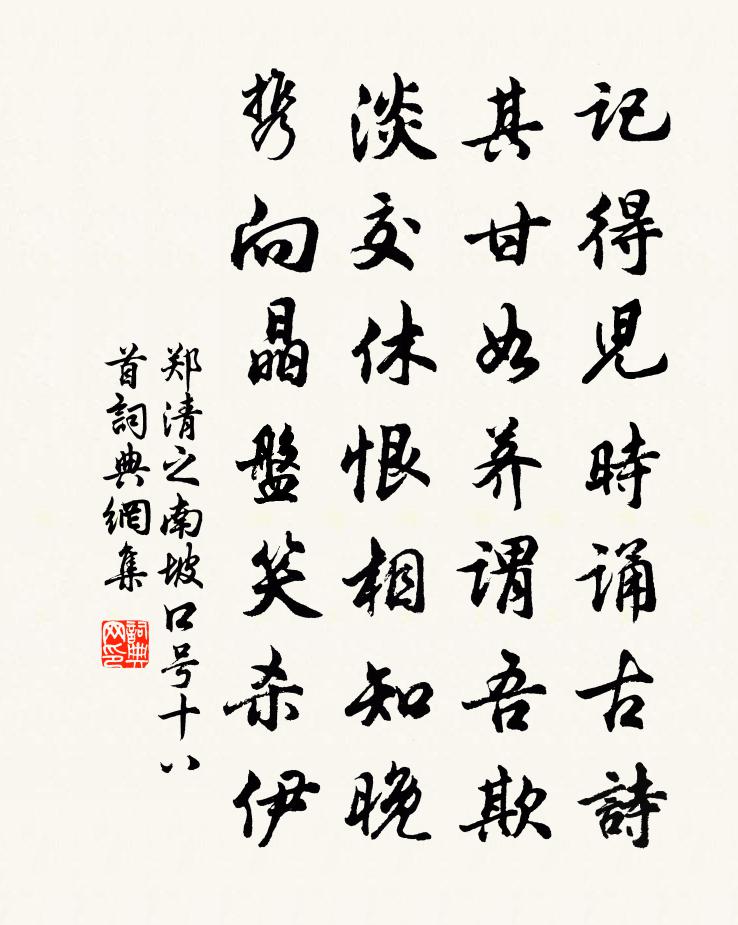 記得兒時誦古詩
其甘如荠謂吾欺
淡交休恨相知晚
携向晶盤笑杀伊
郑清之南坡口号十八
首詞典網集
詞典网印